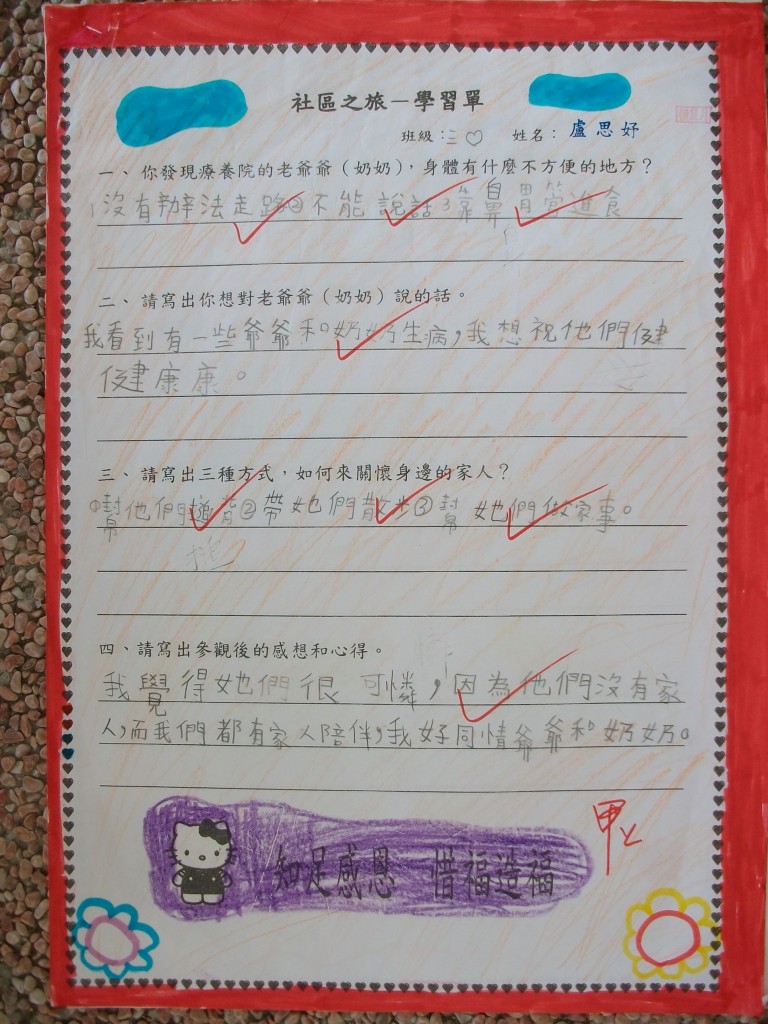 社區之旅－學習單
班級：三♡ 姓名：盧思妤
一、你發現療養院的老爺爺（奶奶），身體有什麼不方便的地方？
1沒有辦法走路②不能說話3靠鼻胃管進食
二、請寫出你想對老爺爺（奶奶）說的話。
我看到有一些爺爺和奶奶生病，我想祝他們健
健康康。
三、請寫出三種方式，如何來關懷身邊的家人？
①幫他們搥背②帶她們散步③幫她們做家事。
搥
四、請寫出參觀後的感想和心得。
我覺得她們很可憐，因為他們沒有家
人，而我們都有家人陪伴，我好同情爺爺和奶奶。
甲上
知足感恩 惜福造福